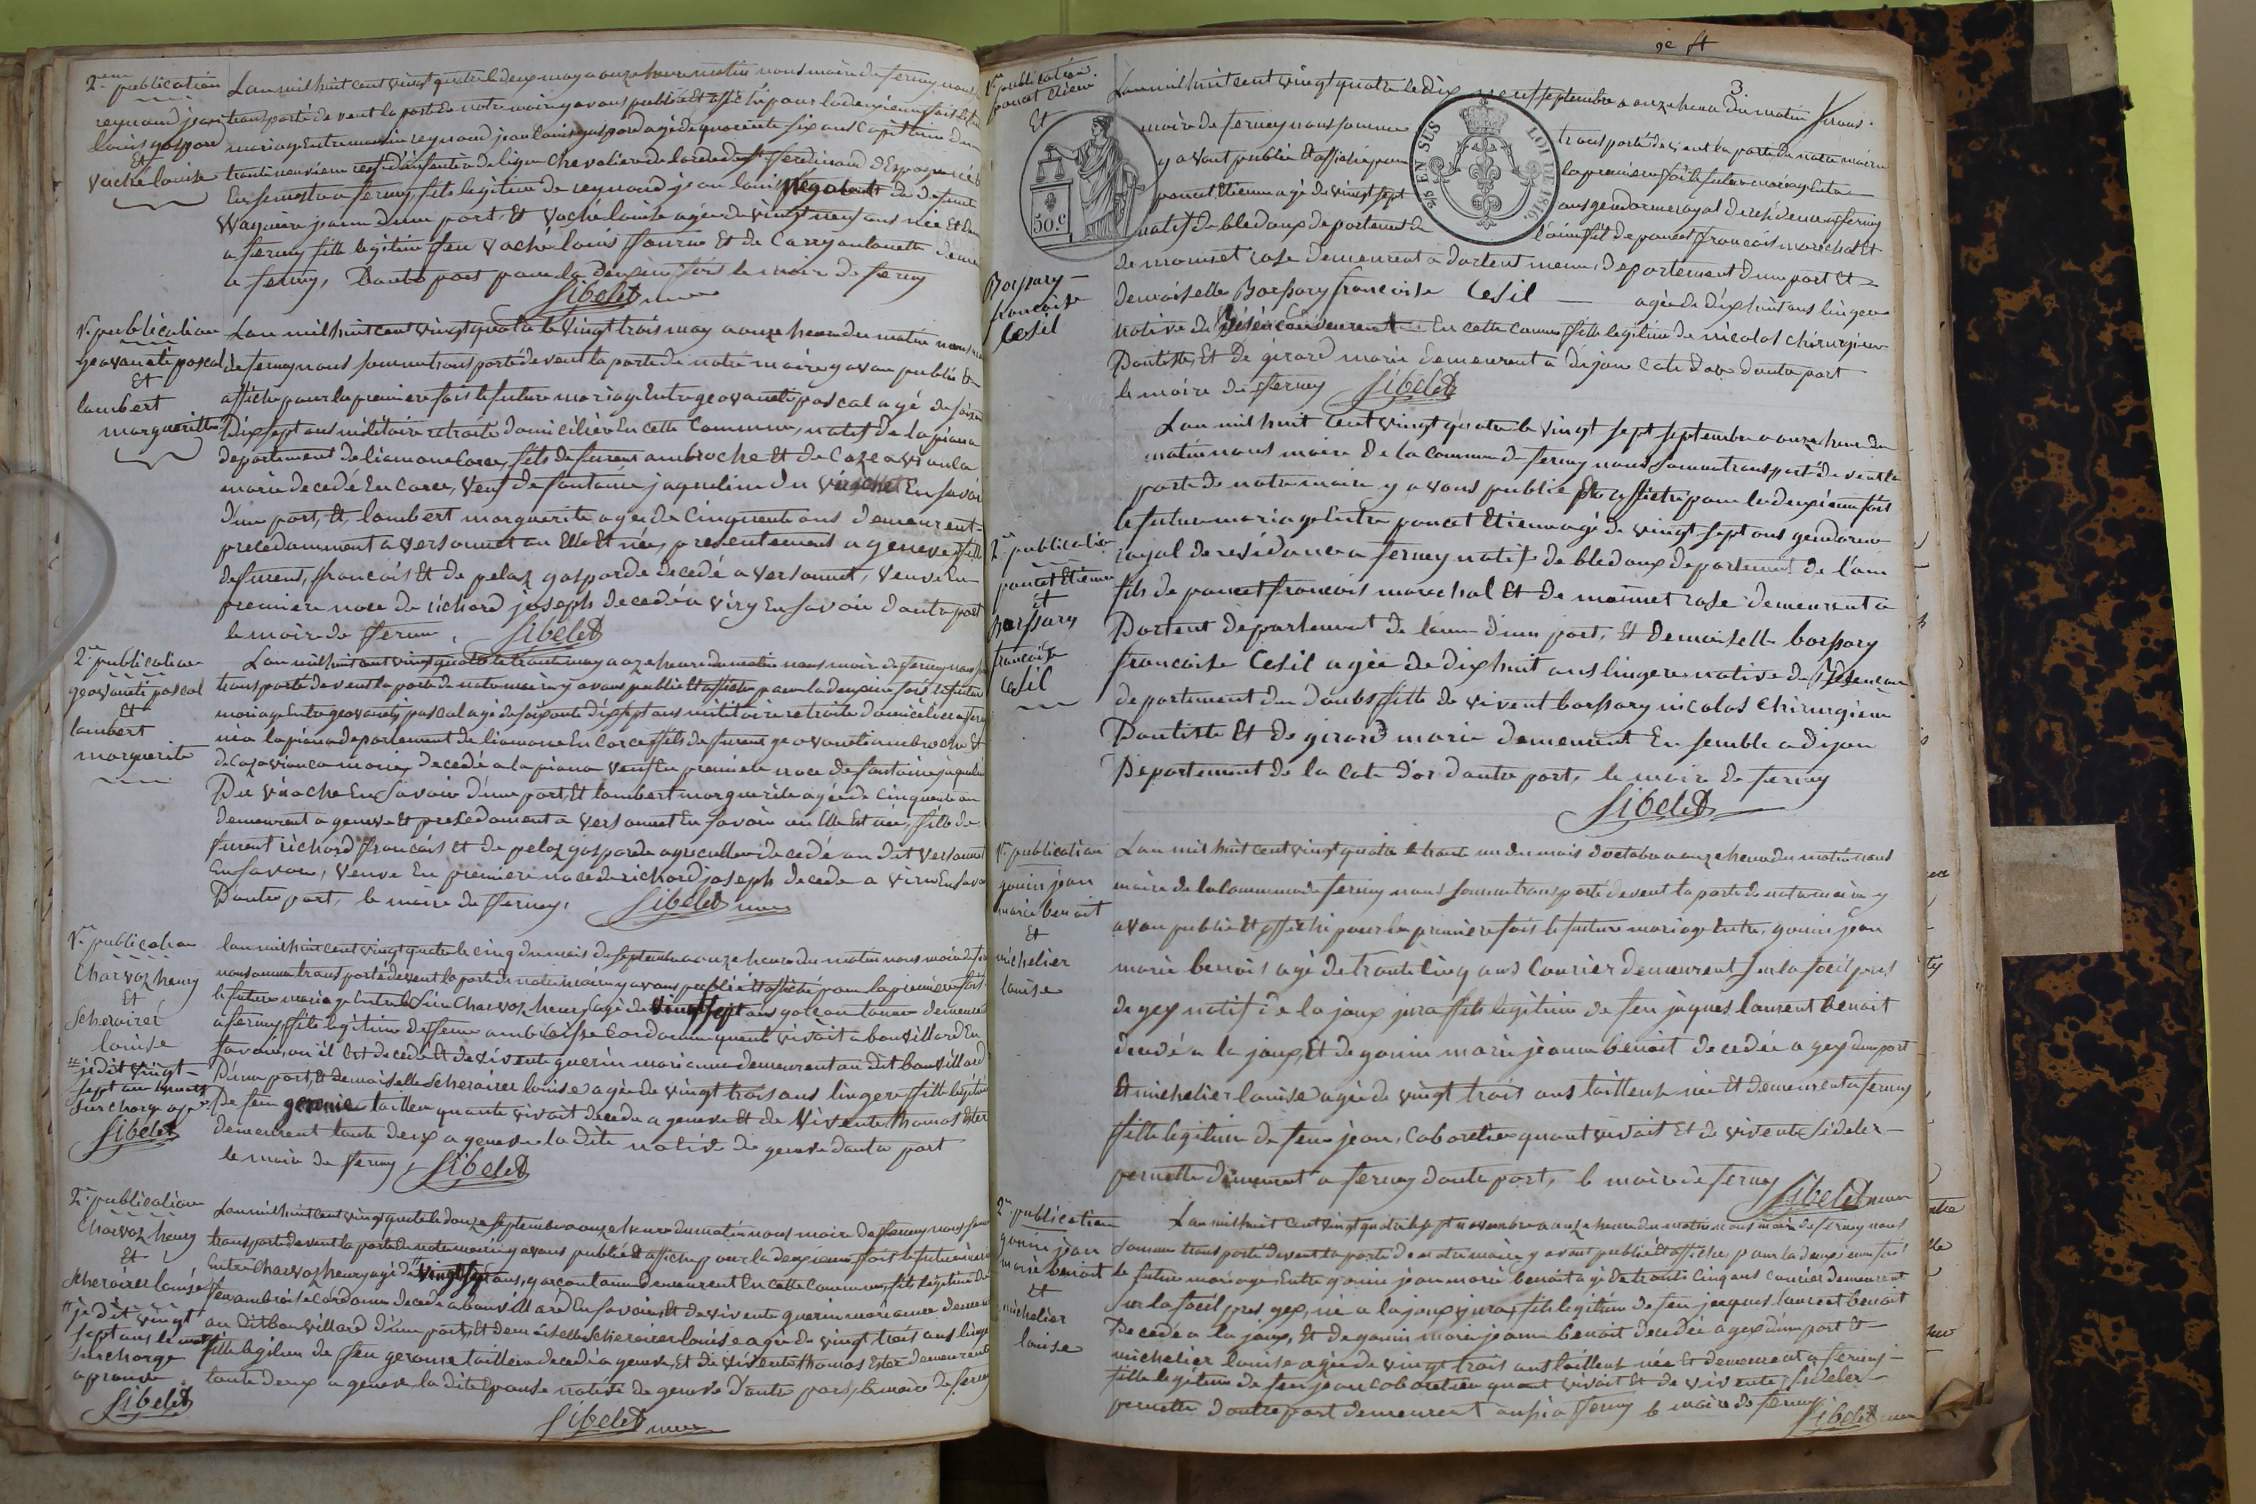 2me publication
reynaud jean
louis gaspard
et
vaché louise
Lan mil huit cent vingt quatre le deux may a onze heure matin nous maire de ferney nous
transporté de vent la porte de notre mairey avons publié et affiché pour la deuxieme fois le futur
mariage Entre reynaud jean louis gaspard agé de quarente six ans Capitaine du
trente neuvieme regt d'infanterie de ligne Chevalier de lordre de st ferdinand d'Espagne née
En semestre a ferney, fils legitime de reynaud jean louis Negotiant du defunte
Waguiere jeanne d'une part, Et Vaché louise agée de vingt neuf ans née Et dem
a ferney fille legitime feu Vaché louis fournie Et de Carry antoinette demeu
a ferney, Dautre part pour la deuxieme fois le maire de ferney
Sibelet maire
1re publication
geovaneti pascal
et
lambert
marguerite
Lan mil huit cent vingt quatre le vingt trois may a onze heure du matin nous maire
de ferney nous somme transporté devant la porte de notre mairey avon publié Et
affiche pour la premiere fois le future mariage Entre geovaneti pascal agé de soixante
Dix sept ans militaire retraite domicilié En cette Commune, natif de la piana
departement de liamone Corce, fils de furent ambroche Et de Cazeavianca
marie decedé En Corce, Veuf de fontaine jaqueline du Virache En savoie
d'une part, Et, lambert marguerite agée de Cinquente ans demeurent
precedamment a versonnet ou Elle Est née, presentement a geneve, fille
defurent, francois Et de pelaz gasparde decedé a versonnet, Veuve En
premiere noce de richard joseph decedé a viry En savoie dautre part
le maire de ferney, Sibelet
2me publication
geovaneti pascal
et
lambert
marguerite
Lan mil huit cent vingt quatre le trente may a onze heure du matin nous maire de ferney nous somme
transporté devent la porte de notre mairey avons publié Et affiche pour la deuxieme fois le future
mariage Entre geovaneti pascal agé de soixante dix sept ans militaire retraite domicilié a ferney
née la piana departement de liamone En Corce fils de furent geovaneti ambroche Et
de Cazavianca marie decedé a la piana veuf En premiere noce de fontaine jaqueline
Du Virache En savoie d'une part, Et lambert marguerite agée de Cinquente an
demeurent a geneve Et precedament a versonnet En savoie ou Elle Est née, fille de
furent richard francois Et de pelaz gasparde agriculteur decedé au dit versonnet
En savoie, Veuve En premiere noce de richard joseph decede a viri En savoie
Dautre part, le maire de ferney, Sibelet maire
1re publication
Charvoz henry
Et
Scheraires
louise
je dit vingt
sept ans le mot
surcharge appr
Sibelet
lan mil huit cent vingt quatre le cinq du mois de septembre a onze heure du matin nous maire de fer
nous somme transporté devent la porte de notre mairey avons publié Et affiché pour la premiere fois
le future mariage Entre le sieur Charvoz henry, agé de vingt sept ans galcon taneur demeurent
a ferney fils legitime defeue ambroise Cordonnier quante vivait a bonvillard En
savoie, ou il Est decedé Et de vivente guerin marianne demeurent au dit bonvillard
D'une part, Et demoiselle Scheraires louise agée de vingt trois ans lingere fille legitime
De feu gerome tailleu quante vivait decede a geneve Et de Vivente thomas Ester
demeurent toute deux a geneve la dite native de geneve dautre part
le maire de ferney, Sibelet
2me publication
Charvoz henry
Et
Scheraires louise
je dit vingt
sept ans le mot
surcharge
aprouvé
Sibelet
Lan mil huit cent vingt quatre le douze septembre a onze heure du matin nous maire de ferney nous somme
transporté devant la porte de notre mairey avons publié Et affiche pour la deuxieme fois le future mariage
Entre Charvoz henry agé de vingt sept ans, garcon taneur demeurent En cette Commune, fils legitime de
feu ambroise Cordonnier decede a bonvillard En savoie, Et de vivente guerin marianne demeu
au dit bonvillard d'une part, Et demoiselle Scheraires louise agée de vingt trois ans linge
fille legitime de feu gerome tailleur decedé a geneve, Et de vivente thomas Ester demeurent
toute deux a geneve la dite Epouse native de geneve D'autre part, le maire de ferney
Sibelet maire
3.
1re publication
poncet Etienne
Et
Borssary
francoise
Cesil
50.c
5/s EN SUS LOI DE 1816.
Lan mil huit cent vingt quatre le Dix neuf septembre a onze heure du matin nous
maire de ferney nous somme transporté devent la porte de notre mairie
y a vont publié Et affiché pour la premiere fois le future mariage Entre
poncet Etienne agé de vingt sept ans gendarme royal de residence a ferney
natif de bledoux departement de l'ain fils de poncet francois marechal Et
de monnet rose demeurent a dortent meme departement d'une part Et
demoiselle Borssary francoise Cesil agée de dix huit ans lingere
native de Besencon demeurent En cette Commune fille legitime de nicolas chirurgien
Dentiste Et de girard marie demeurent a dijon Cote d'or d'autre part
le maire de ferney Sibelet
2me publication
poncet Etienne
et
Borssary
francoise
Cesil
Lan mil huit cent vingt quatre le vingt sept septembre a onze heure du
matin nous maire de la Commune de ferney nous somme transporté de vent la
porte de notre mairie y a vons publié Et affiché pour la deuxieme fois
le future mariage Entre poncet Etienne agé de vingt sept ans gendarme
royal de residance a ferney natif de bledoux departement de l'ain
fils de poncet francois marechal Et de monnet rose demeurent a
Dortent departement de l'ain d'une part, Et demoiselle borssary
francoise Cesil agée de dix huit ans lingere native de Besencon
departement du doubs fille de vivent borssary nicolas chirurgien
Dentiste Et de girard marie demeurent En semble a dijon
Departement de la Cote d'or d'autre part, le maire de ferney
Sibelet
1re publication
gonin jean
marie benoit
Et
michelier
louise
Lan mil huit cent vingt quatre le trente un du mois doctobre a onze heure du matin nous
maire de la Commune de ferney nous somme transporté devent la porte de notre mairie y
avon publié Et affiché pour la premiere fois le future mariage Entre, gonin jean
marie benoit agé de trente Cinq ans Courier demeurent sur la focil pres
de gex natif de la joux jura fils legitime de feu jaques laurent benoit
decedé a la joux, Et de gonin marie jeanne benoit decedée a gex d'une part
Et michelier louise agée de vingt trois ans tailleuse née Et demeurent a ferney
fille legitime de feue jean, Cabaretier quant vivait Et de vivente Sideler
pernette demeurent a ferney d'autre part, le maire de ferney
Sibelet maire
2me publication
gonin jean
marie benoit
et
michelier
louise
Lan mil huit cent vingt quatre le sept novembre a onze heure du matin nous maire de ferney nous
somme transporté devent la porte de notre mairie y avont publié Et affiche, pour la deuxieme fois
le future mariage Entre gonin jean marie benoit agé de trente Cinq ans courier demeurent
sur la focil pres gex, né a la joux jura, fils legitime de feu jacques laurent benoit
Decedé a la joux, Et de gonin marie jeanne benoit decedée a gex d'une part Et
michelier louise agée de vingt trois ans tailleuse née Et demeurent a ferney
fille legitime de feu jean Cabaretier quant vivait Et de vivente Sideler
pernette d'autre part demeurent aussi a ferney le maire de ferney
Sibelet maire